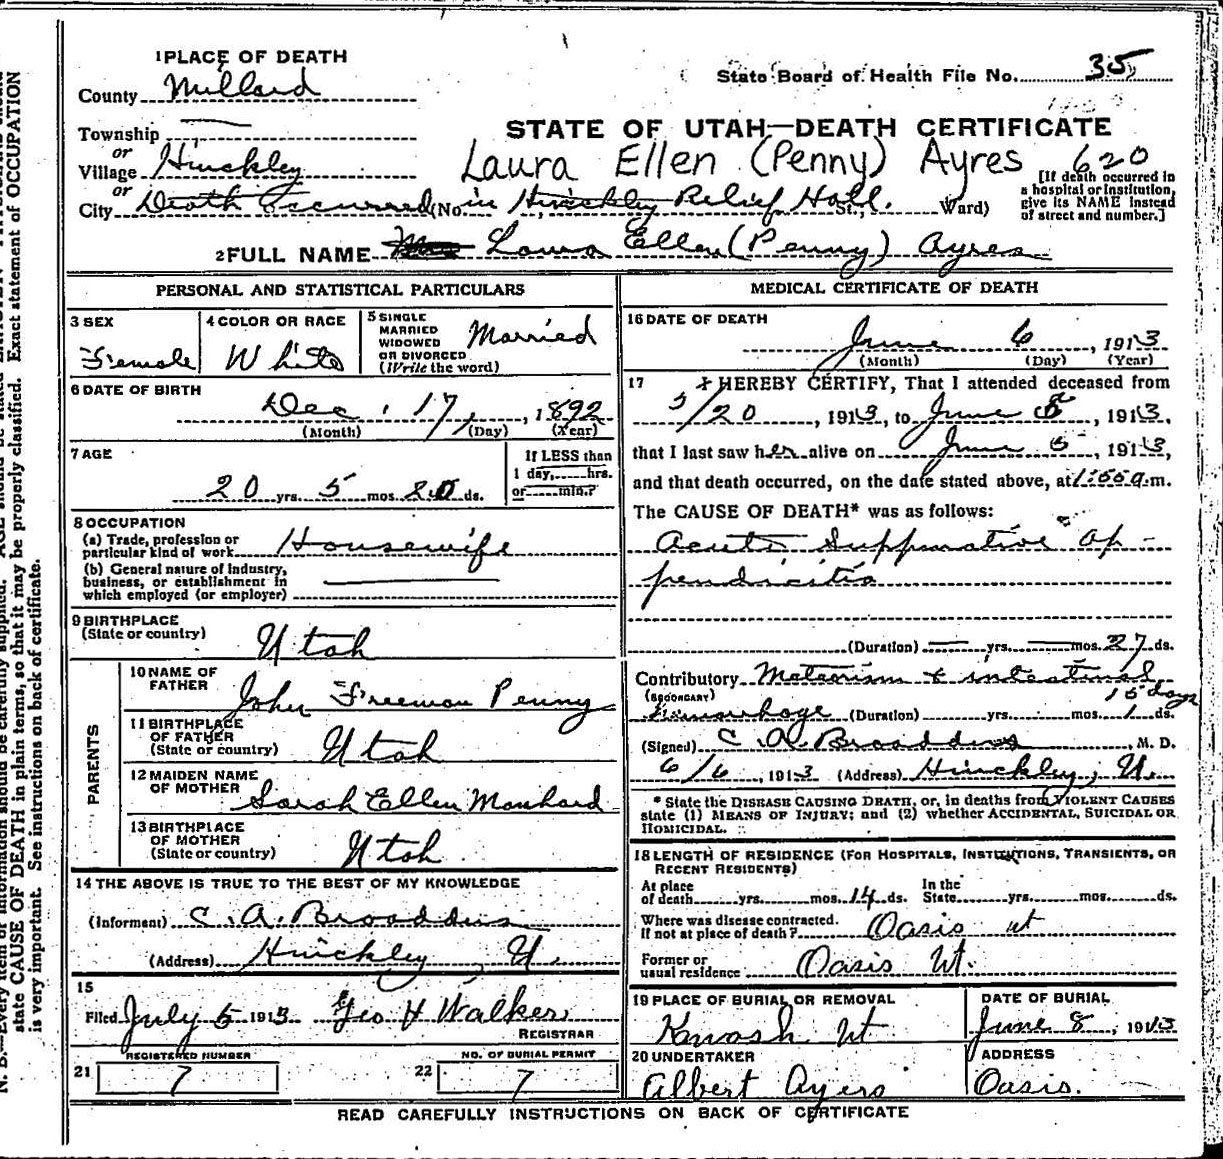 1 PLACE OF DEATH
County Millard
State Board of Health File No. 35
Township
or
Village Hinckley
or
City Death Occurred (No. in Hinckley Relief Hall. St., Ward)
STATE OF UTAH—DEATH CERTIFICATE
Laura Ellen (Penny) Ayres 620
[If death occurred in
a hospital or institution,
give its NAME instead
of street and number.]
2 FULL NAME Laura Ellen (Penny) Ayres
PERSONAL AND STATISTICAL PARTICULARS
3 SEX
Female
4 COLOR OR RACE
White
5 SINGLE
MARRIED
WIDOWED
OR DIVORCED
(Write the word)
Married
6 DATE OF BIRTH
Dec. 17, 1892
(Month) (Day) (Year)
7 AGE
20 yrs. 5 mos. 20 ds.
If LESS than
1 day, hrs.
or min.?
8 OCCUPATION
(a) Trade, profession or
particular kind of work Housewife
(b) General nature of Industry,
business, or establishment in
which employed (or employer)
9 BIRTHPLACE
(State or country)
Utah
PARENTS
10 NAME OF
FATHER
John Freeman Penny
11 BIRTHPLACE
OF FATHER
(State or country)
Utah
12 MAIDEN NAME
OF MOTHER
Sarah Ellen Manhard
13 BIRTHPLACE
OF MOTHER
(State or country)
Utah
14 THE ABOVE IS TRUE TO THE BEST OF MY KNOWLEDGE
(Informant) C. A. Broaddus
(Address) Hinckley, U.
15
Filed July 5 1913 Geo H Walker,
REGISTRAR
REGISTERED NUMBER
21 7
NO. OF BURIAL PERMIT
22 7
MEDICAL CERTIFICATE OF DEATH
16 DATE OF DEATH
June 6, 1913
(Month) (Day) (Year)
17 I HEREBY CERTIFY, That I attended deceased from
5/20, 1913, to June, 1913.
that I last saw her alive on June 5, 1913,
and that death occurred, on the date stated above, at a.m.
The CAUSE OF DEATH* was as follows:
Acute Suppurative Ap-
pendicitis
(Duration) yrs. mos. 27 ds.
Contributory Meteorism & intestinal
(SECONDARY) 15 days
Hemorrhage (Duration) yrs. mos. 1 ds.
(Signed) C. A. Broaddus, M. D.
6/6, 1913 (Address) Hinckley, U.
* State the DISEASE CAUSING DEATH, or, in deaths from VIOLENT CAUSES
state (1) MEANS OF INJURY; and (2) whether ACCIDENTAL, SUICIDAL OR
HOMICIDAL.
18 LENGTH OF RESIDENCE (FOR HOSPITALS, INSTITUTIONS, TRANSIENTS, OR
RECENT RESIDENTS)
At place
of death yrs. mos. 14 ds.
In the
State yrs. mos. ds.
Where was disease contracted.
If not at place of death? Oasis Ut
Former or
usual residence Oasis Ut.
19 PLACE OF BURIAL OR REMOVAL
Kanosh Ut
DATE OF BURIAL
June 8, 1913
20 UNDERTAKER
Albert Ayers
ADDRESS
Oasis.
READ CAREFULLY INSTRUCTIONS ON BACK OF CERTIFICATE
state CAUSE OF DEATH in plain terms, so that it may be properly classified. Exact statement of OCCUPATION
is very important. See instructions on back of certificate.